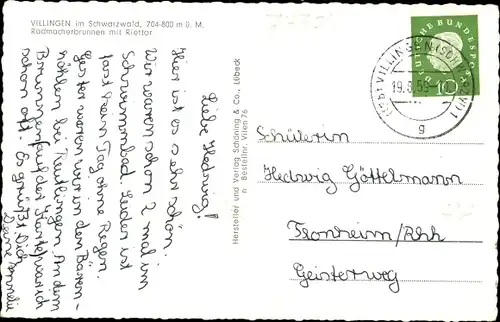 VILLINGEN im Schwarzwald, 704-800 m ü. M.
Radmacherbrunnen mit Riettor
Liebe Hedwig!
Hier ist es sehr schön.
Wir waren schon 2 mal im
Schwimmbad. Leider ist
fast kein Tag ohne Regen.
Gestern waren wir in den Bären-
höhlen bei Reutlingen. An dem
Brunnen auf der Karte war ich
schon oft. Es grüßt Dich
Deine
Hersteller und Verlag Schöning & Co., Lübeck
Bestellnr. Vilen 76
DEUTSCHE BUNDESPOST
10
VILLINGEN (SCHWARZW) 1
19.8.59
g
Schülerin
Hedwig Göttelmann
Fronheim/Rhh
Geisterweg